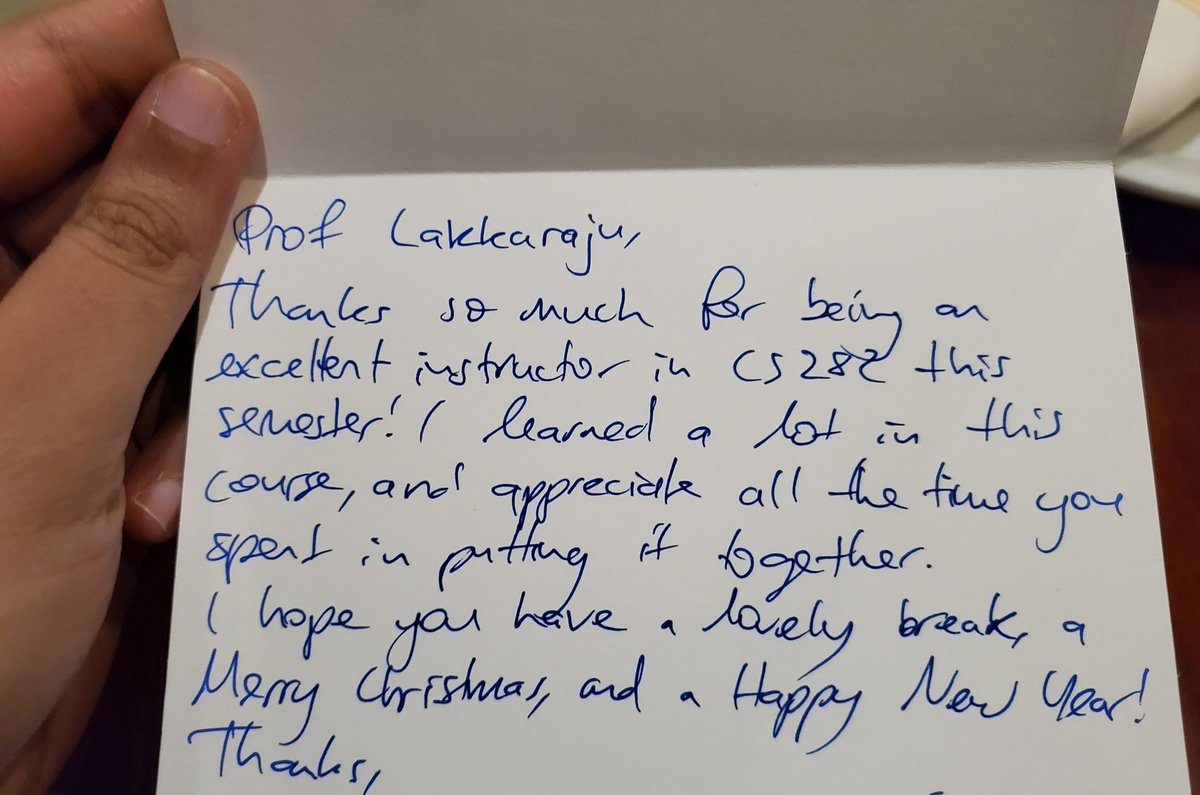 Prof Lakkaraju,
Thanks so much for being an
excellent instructor in CS282 this
semester! I learned a lot in this
course, and appreciate all the time you
spent in putting it together.
I hope you have a lovely break, a
Merry Christmas, and a Happy New Year!
Thanks,